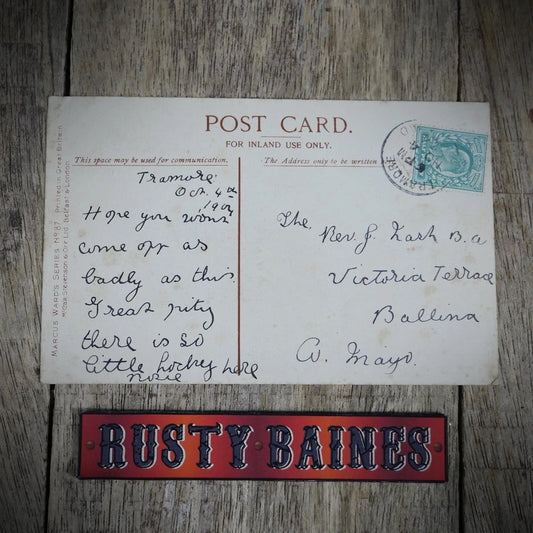 POST CARD.
FOR INLAND USE ONLY.
This space may be used for communication.
The Address only to be written
MARCUS WARD'S SERIES, No 87. Printed in Great Britain
McCaw, Stevenson & Orr Ltd. Belfast & London.
Tramore
Oct. 4th
1904
Hope you won't
come off as
badly as this.
Great pity
there is so
little hockey here
Rosie
The
Rev. J. B.a
Victoria Terrace
Ballina
Co. Mayo.
TRAMORE
RUSTY BAINES